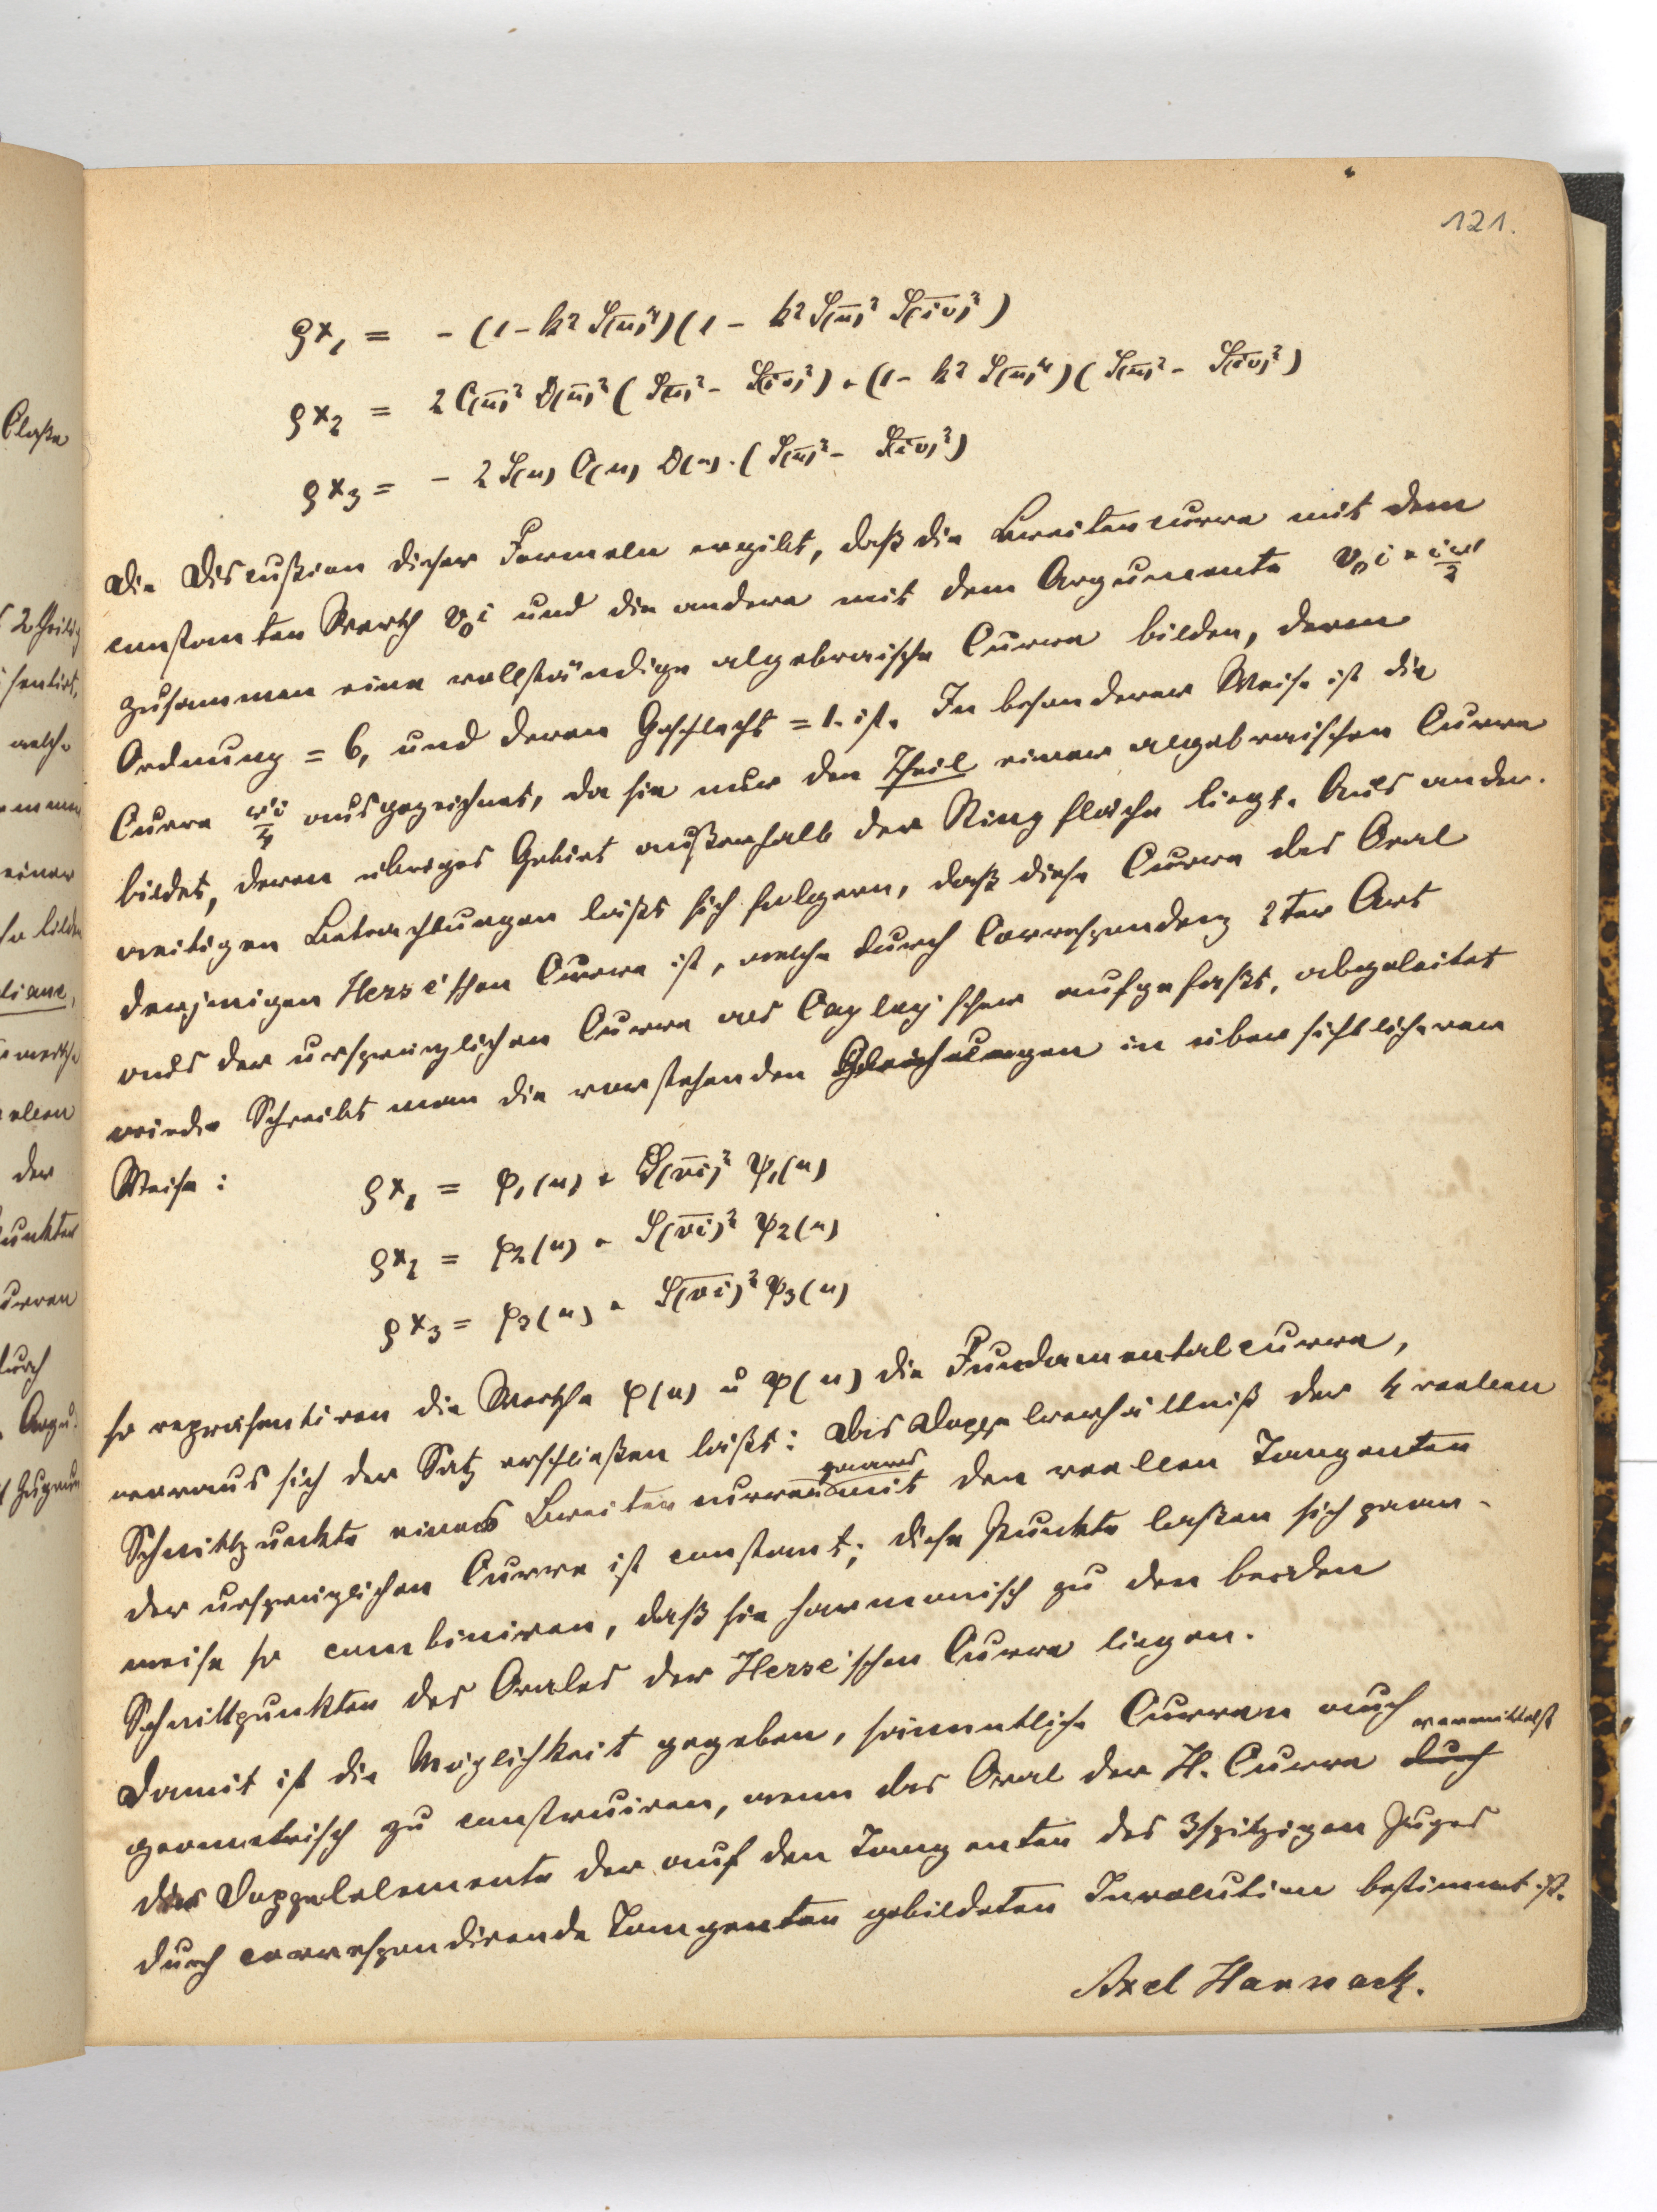 121.
ϱx₁ = - (1 - k² S(u)⁴)(1 - k² S(u)² S(iv)²)
ϱx₂ = 2 C(u)² D(u)² (S(u)² - S(iv)²) + (1 - k² S(u)⁴)(S(u)² - S(iv)²)
ϱx₃ = - 2 S(u) C(u) D(u) · (S(u)² - S(iv)²)
Die Discußion dieser Formeln ergibt, daß die Breitencurve mit dem
constanten Werth v₀i und die andere mit dem Argumente v₀i + iω'/2
zusammen eine vollständige algebraische Curve bilden, deren
Ordnung = 6, und deren Geschlecht = 1. ist. In besonderer Weise ist die
Curve ω'i/4 ausgezeichnet, da sie nur den Theil einer algebraischen Curve
bildet, deren übriges Gebiet außerhalb der Ringfläche liegt. Aus ander-
weitigen Betrachtungen läßt sich folgern, daß diese Curve das Oval
derjenigen Hesse'schen Curve ist, welche durch Correspondenz 2ter Art
aus der ursprünglichen Curve als Cayley'scher aufgefaßt, abgeleitet
wird. Schreibt man die vorstehenden Gleichungen in übersichtlicherer
Weise :
ϱx₁ = φ₁(u) + S(vi)² ψ₁(u)
ϱx₂ = φ₂(u) + S(vi)² ψ₂(u)
ϱx₃ = φ₃(u) + S(vi)² ψ₃(u)
so repräsentiren die Werthe φ(u) u ψ(u) die Fundamentalcurve,
woraus sich der Satz erschließen läßt: Das Doppelverhältniß der 4 reellen
Schnittpunkte eines Breitencurvenpaares mit den reellen Tangenten
der ursprünglichen Curve ist constant; diese Punkte laßen sich paar-
weise so combiniren, daß sie harmonisch zu den beiden
Schnittpunkten des Ovales der Hesse'schen Curve liegen.
Damit ist die Möglichkeit gegeben, sämmtliche Curven auch
geometrisch zu construiren, wenn das Oval der H. Curve durch vermittelst
der Doppelelemente der auf den Tangenten des 3spitzigen Zuges
durch correspondirende Tangenten gebildeten Involution bestimmt ist.
Axel Harnack.
Claße
2theilig
sentirt,
welche
einer
so bilden
liane,
der
unkter
urven
durch
Argu-